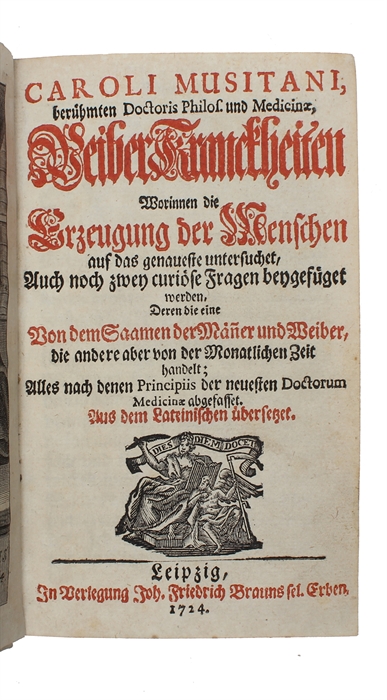 CAROLI MUSITANI,
berühmten Doctoris Philos. und Medicinæ,
Weiber Kranckheiten
Worinnen die
Erzeugung der Menschen
auf das genaueste untersuchet,
Auch noch zwey curiöse Fragen beygefüget
werden,
Deren die eine
Von dem Saamen der Mäñer und Weiber,
die andere aber von der Monatlichen Zeit
handelt;
Alles nach denen Principiis der neuesten Doctorum
Medicinæ abgefasset.
Aus dem Lateinischen übersetzet.
DIES DIEM DOCET
Leipzig,
In Verlegung Joh. Friedrich Brauns sel. Erben,
1724.